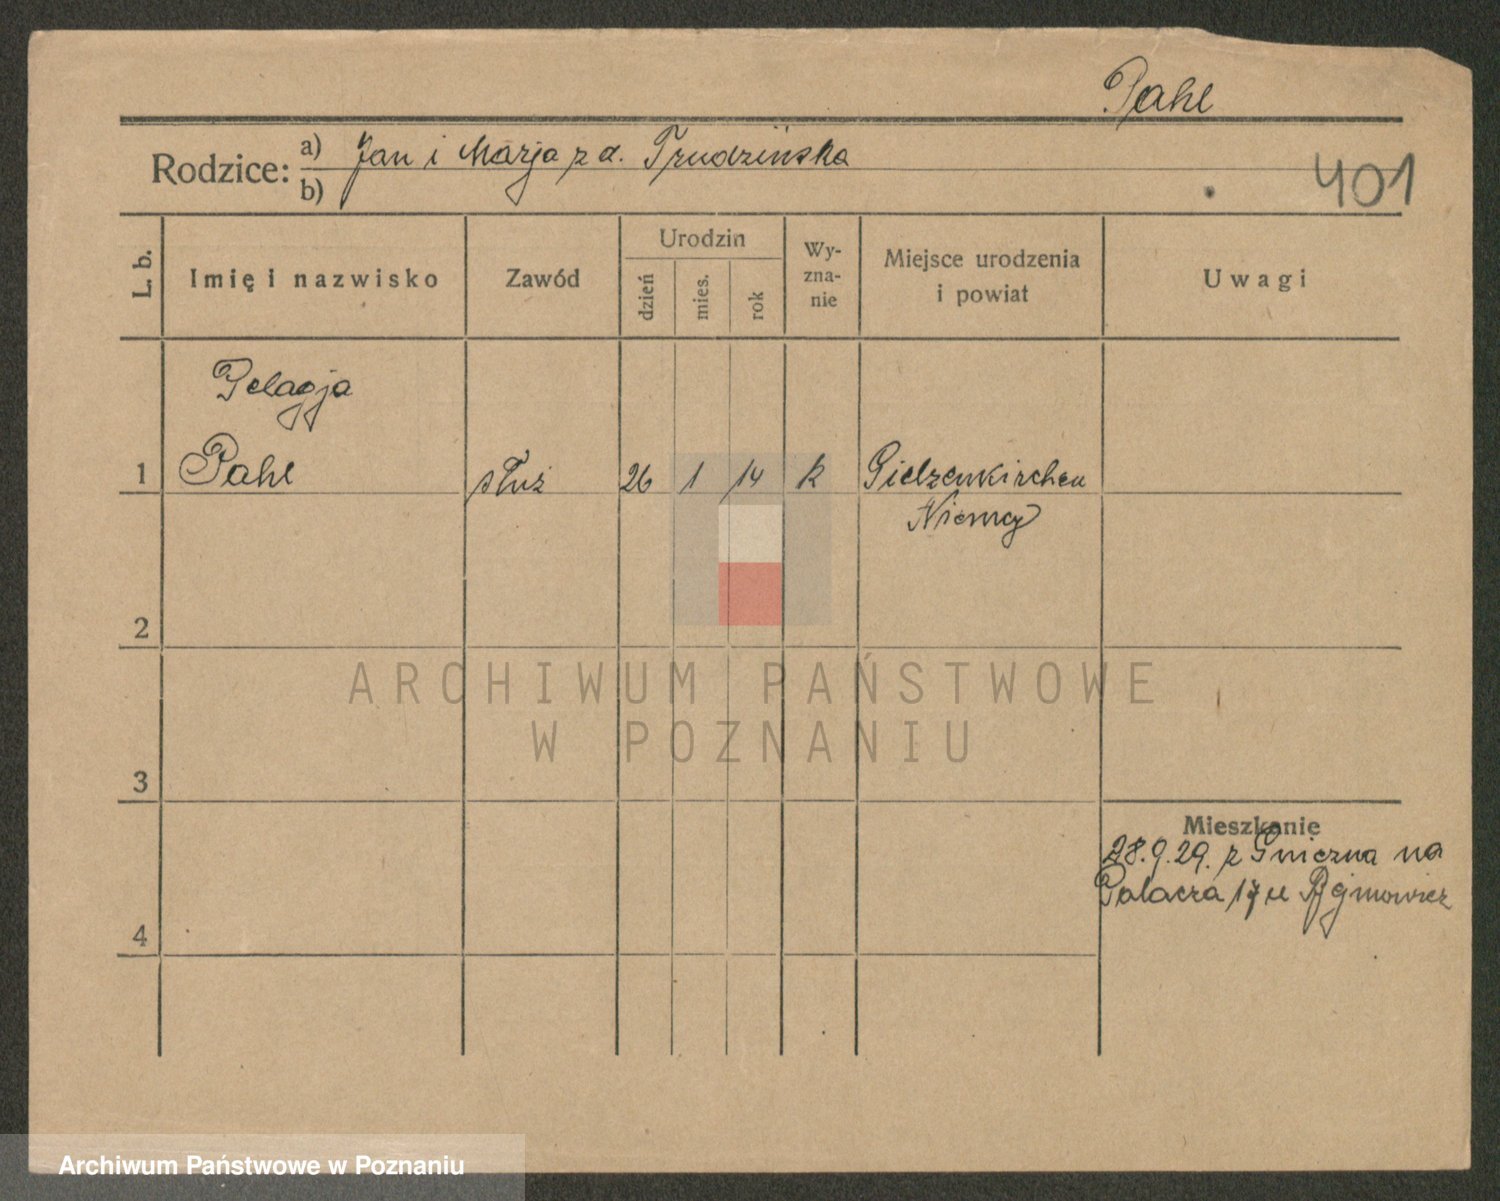 Pahl
Rodzice: a) Jan i Marja z d. Trudzińska
b)
401
L. b.
Imię i nazwisko
Zawód
Urodzin
dzień
mies.
rok
Wy-
zna-
nie
Miejsce urodzenia
i powiat
Uwagi
Pelagja
1 Pahl służ 26 1 14 k Gielzenkirchen
Niemcy
2
ARCHIWUM PAŃSTWOWE
W POZNANIU
3
Mieszkanie
28.9.29. z Gniezna na
Palacza 17 u
4
Archiwum Państwowe w Poznaniu